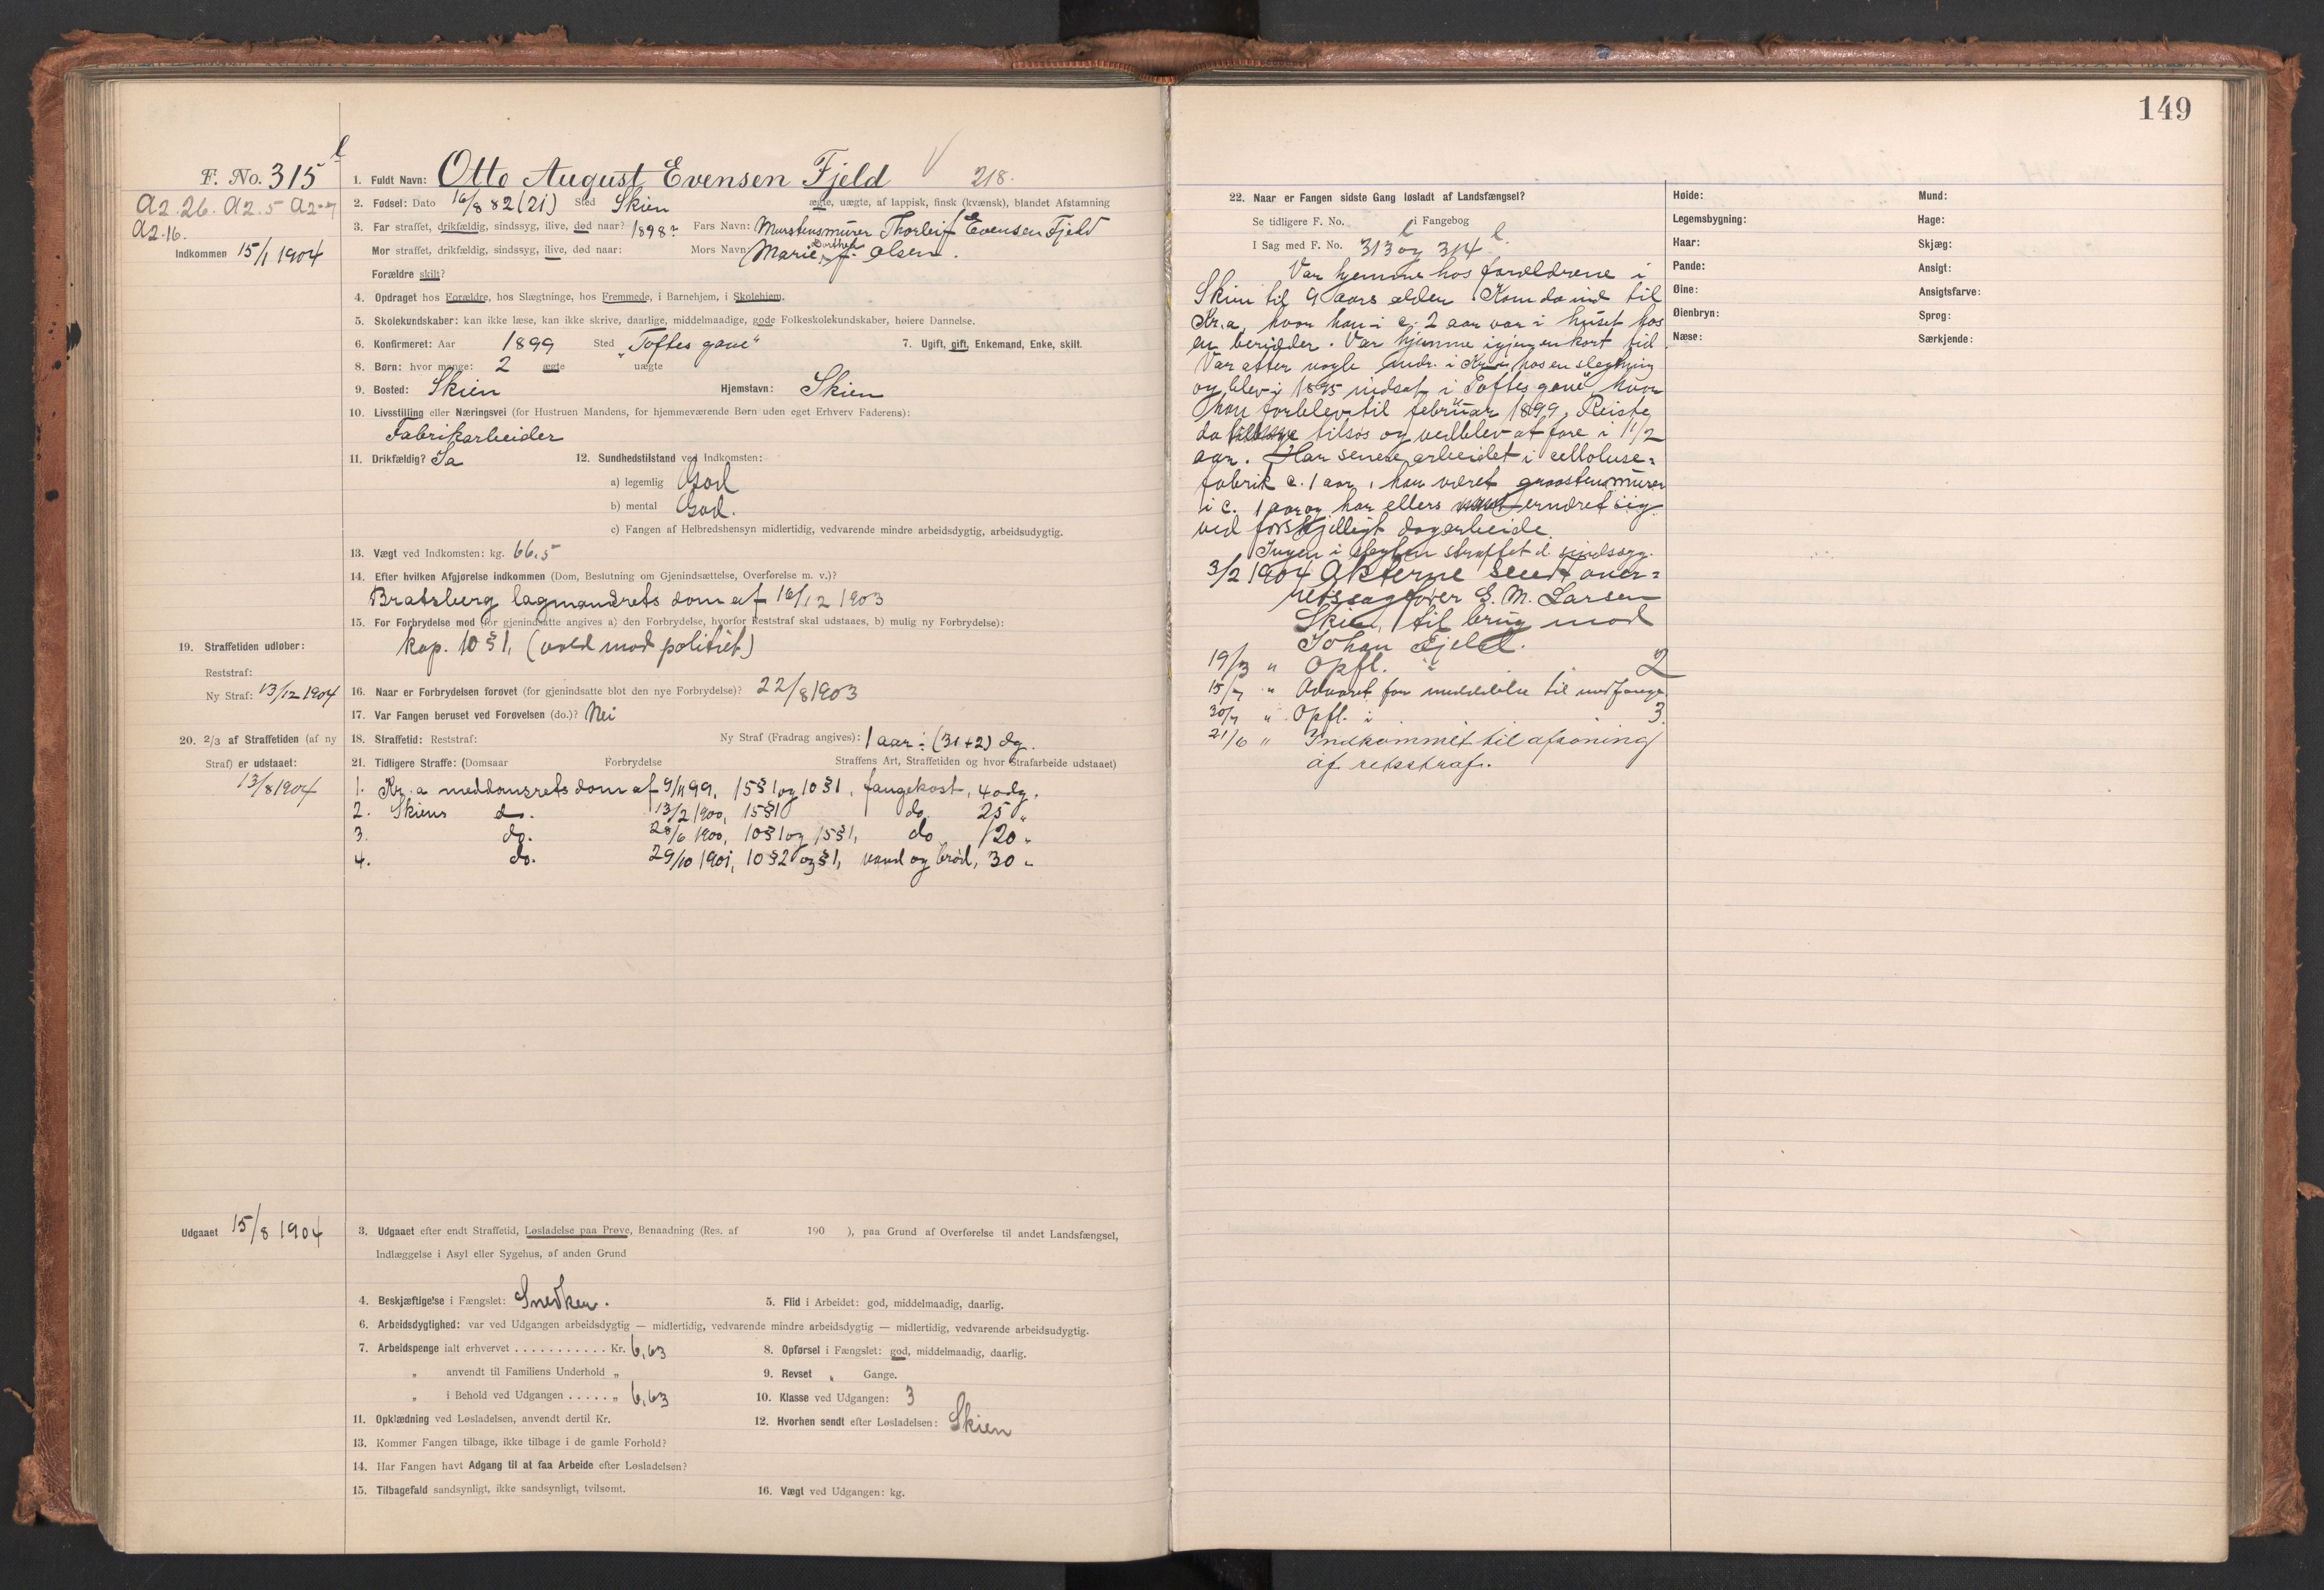 149
F. No. 315 l
A2.26. A2.5 A2.
A2.16.
Indkommen 15/1 1904
1. Fuldt Navn: Otto August Evensen Fjeld 218.
2. Fødsel: Dato 16/8 82 (21) Sted Skien ægte, uægte, af lappisk, finsk (kvænsk), blandet Afstamning
3. Far straffet, drikfældig, sindssyg, ilive, død naar? 1898? Fars Navn: Murstensmurer Thorleif Evensen Fjeld
Mor straffet, drikfældig, sindssyg, ilive, død naar: Mors Navn: Marie Dorthea f. Olsen.
Forældre skilt?
4. Opdraget hos Forældre, hos Slægtninge, hos Fremmede, i Barnehjem, i Skolehjem.
5. Skolekundskaber: kan ikke læse, kan ikke skrive, daarlige, middelmaadige, gode Folkeskolekundskaber, høiere Dannelse.
6. Konfirmeret: Aar 1899 Sted „Toftes gave" 7. Ugift, gift, Enkemand, Enke, skilt.
8. Børn: hvor mange: 2 ægte uægte
9. Bosted: Skien Hjemstavn: Skien
10. Livsstilling eller Næringsvei (for Hustruen Mandens, for hjemmeværende Børn uden eget Erhverv Faderens):
Fabrikarbeider
11. Drikfældig? Ja 12. Sundhedstilstand ved Indkomsten:
a) legemlig God
b) mental God.
c) Fangen af Helbredshensyn midlertidig, vedvarende mindre arbeidsdygtig, arbeidsudygtig.
13. Vægt ved Indkomsten: kg. 66,5
14. Efter hvilken Afgjørelse indkommen (Dom, Beslutning om Gjenindsættelse, Overførelse m. v.)?
Bratsberg lagmandsrets dom af 16/12 1903
15. For Forbrydelse mod (for gjenindsatte angives a) den Forbrydelse, hvorfor Reststraf skal udstaaes, b) mulig ny Forbrydelse):
kap. 10 § 1, (vold mod politiet)
19. Straffetiden udløber:
Reststraf:
Ny Straf: 13/12 1904
16. Naar er Forbrydelsen forøvet (for gjenindsatte blot den nye Forbrydelse)? 22/8 1903
17. Var Fangen beruset ved Forøvelsen (do.)? Nei
20. 2/3 af Straffetiden (af ny
Straf) er udstaaet:
13/8 1904
18. Straffetid: Reststraf: Ny Straf (Fradrag angives): 1 aar ÷ (31+2) dg.
21. Tidligere Straffe: (Domsaar Forbrydelse Straffens Art, Straffetiden og hvor Strafarbeide udstaaet)
1. Kr.a meddomsrets dom af 9/11 99, 15 § 1 og 10 § 1, fangekost, 40 dg.
2. Skiens do. 13/2 1900, 15 § 1 do. 25 "
3. do. 28/6 1900, 10 § 1 og 15 § 1, do 120 "
4. do. 29/10 1901, 10 § 2 og § 1, vand og brød, 30 "
Udgaaet 15/8 1904
3. Udgaaet efter endt Straffetid, Løsladelse paa Prøve, Benaadning (Res. af 190 ), paa Grund af Overførelse til andet Landsfængsel,
Indlæggelse i Asyl eller Sygehus, af anden Grund
4. Beskjæftigelse i Fængslet: Snedker. 5. Flid i Arbeidet: god, middelmaadig, daarlig.
6. Arbeidsdygtighed: var ved Udgangen arbeidsdygtig — midlertidig, vedvarende mindre arbeidsdygtig — midlertidig, vedvarende arbeidsudygtig.
7. Arbeidspenge ialt erhvervet . . . . . . . . . . . Kr. 6,63 8. Opførsel i Fængslet: god, middelmaadig, daarlig.
„ anvendt til Familiens Underhold „ 9. Revset „ Gange.
„ i Behold ved Udgangen . . . . . „ 6,63 10. Klasse ved Udgangen: 3
11. Opklædning ved Løsladelsen, anvendt dertil Kr. 12. Hvorhen sendt efter Løsladelsen: Skien
13. Kommer Fangen tilbage, ikke tilbage i de gamle Forhold?
14. Har Fangen havt Adgang til at faa Arbeide efter Løsladelsen?
15. Tilbagefald sandsynligt, ikke sandsynligt, tvilsomt. 16. Vægt ved Udgangen: kg.
22. Naar er Fangen sidste Gang løsladt af Landsfængsel?
Se tidligere F. No. i Fangebog
I Sag med F. No. 313 l og 314 l.
Var hjemme hos forældrene i
Skien til 9 aars alder. Kom da ind til
Kr.a, hvor han i c. 2 aar var i huset hos
en berider. Var hjemme igjen en kort tid.
Var atter nogle mdr. i Kr.a hos en slegtning
og blev i 1895 indsat i „Toftes gave", hvor
han forblev til februar 1899. Reiste
da tilsøs og vedblev at fare i 1 1/2
aar. Har senere arbeidet i celloluse-
fabrik c. 1 aar, har været graastensmurer
i c. 1 aar og har ellers ernæret sig
ved forskjelligt dagarbeide.
Ingen i slegten straffet el. sindssyg.
3/2 1904 Akterne sendt over-
retssagfører G. M. Larsen
Skien, til brug mod
Johan Fjeld.
19/3 " Opfl. i 2
15/7 " Advaret for meddelelse til medfange
30/7 " Opfl. i 3.
21/6 " Indkommet til afsoning
af retsstraf.
Høide:
Legemsbygning:
Haar:
Pande:
Øine:
Øienbryn:
Næse:
Mund:
Hage:
Skjæg:
Ansigt:
Ansigtsfarve:
Sprog:
Særkjende: